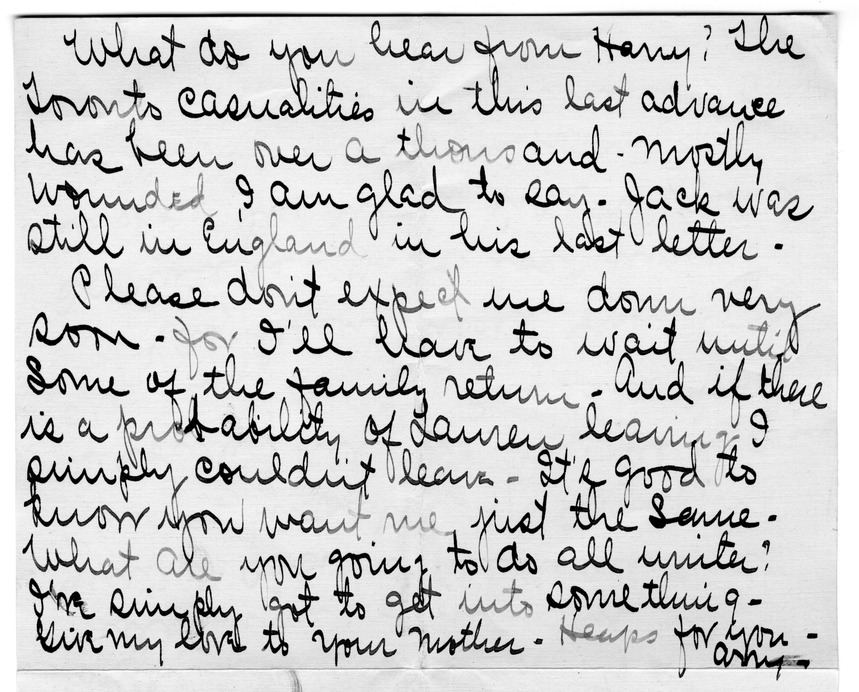 What do you hear from Harry? The
Toronto casualities in this last advance
has been over a thousand - mostly
wounded, I am glad to say. Jack was
still in England in his last letter -
Please don't expect me down very
soon - for I'll have to wait until
some of the family return - And if there
is a probability of Lauren leaving I
simply couldn't leave - It's good to
know you want me just the same -
What are you going to do all winter?
I've simply got to get into something -
Give my love to your mother - Heaps for you -